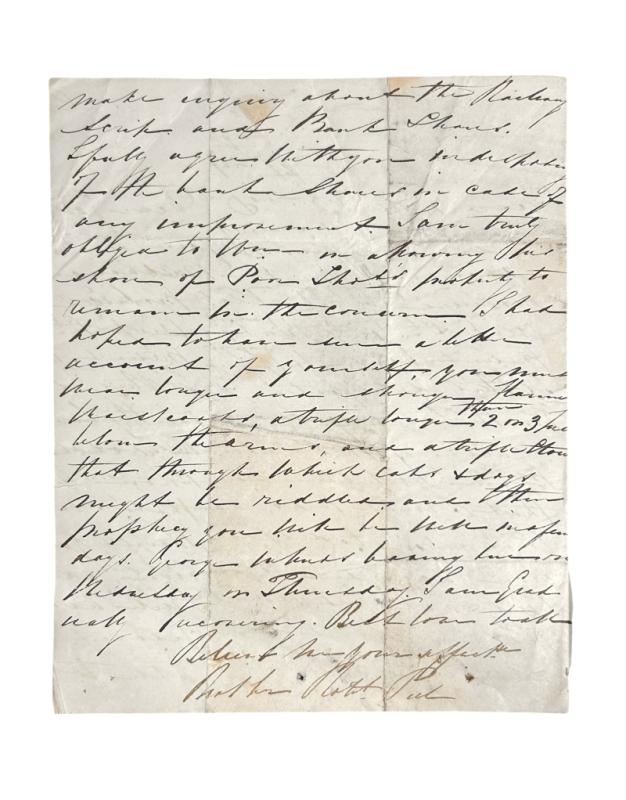 make inquiry about the Railway
Scrip and Bank Shares.
I fully agree with you in disposing
of the bank Shares in case of
any improvement I am truly
obliged to Wm in allowing his
share of Poor property to
remain in the concern I had
hoped to have seen a better
account of yourself, you must
wear longer and stronger Flannel
Waistcoats, a trifle longer than 2 or 3 inc
below the arms, and a trifle
that through which cats & dogs
might be riddled and then I
prophecy you will be well in a few
days. George intends leaving here on
Wednesday or Thursday. I am Grad
ually recovering. Best love to all
Believe me your affecte
Brother Robt Peel